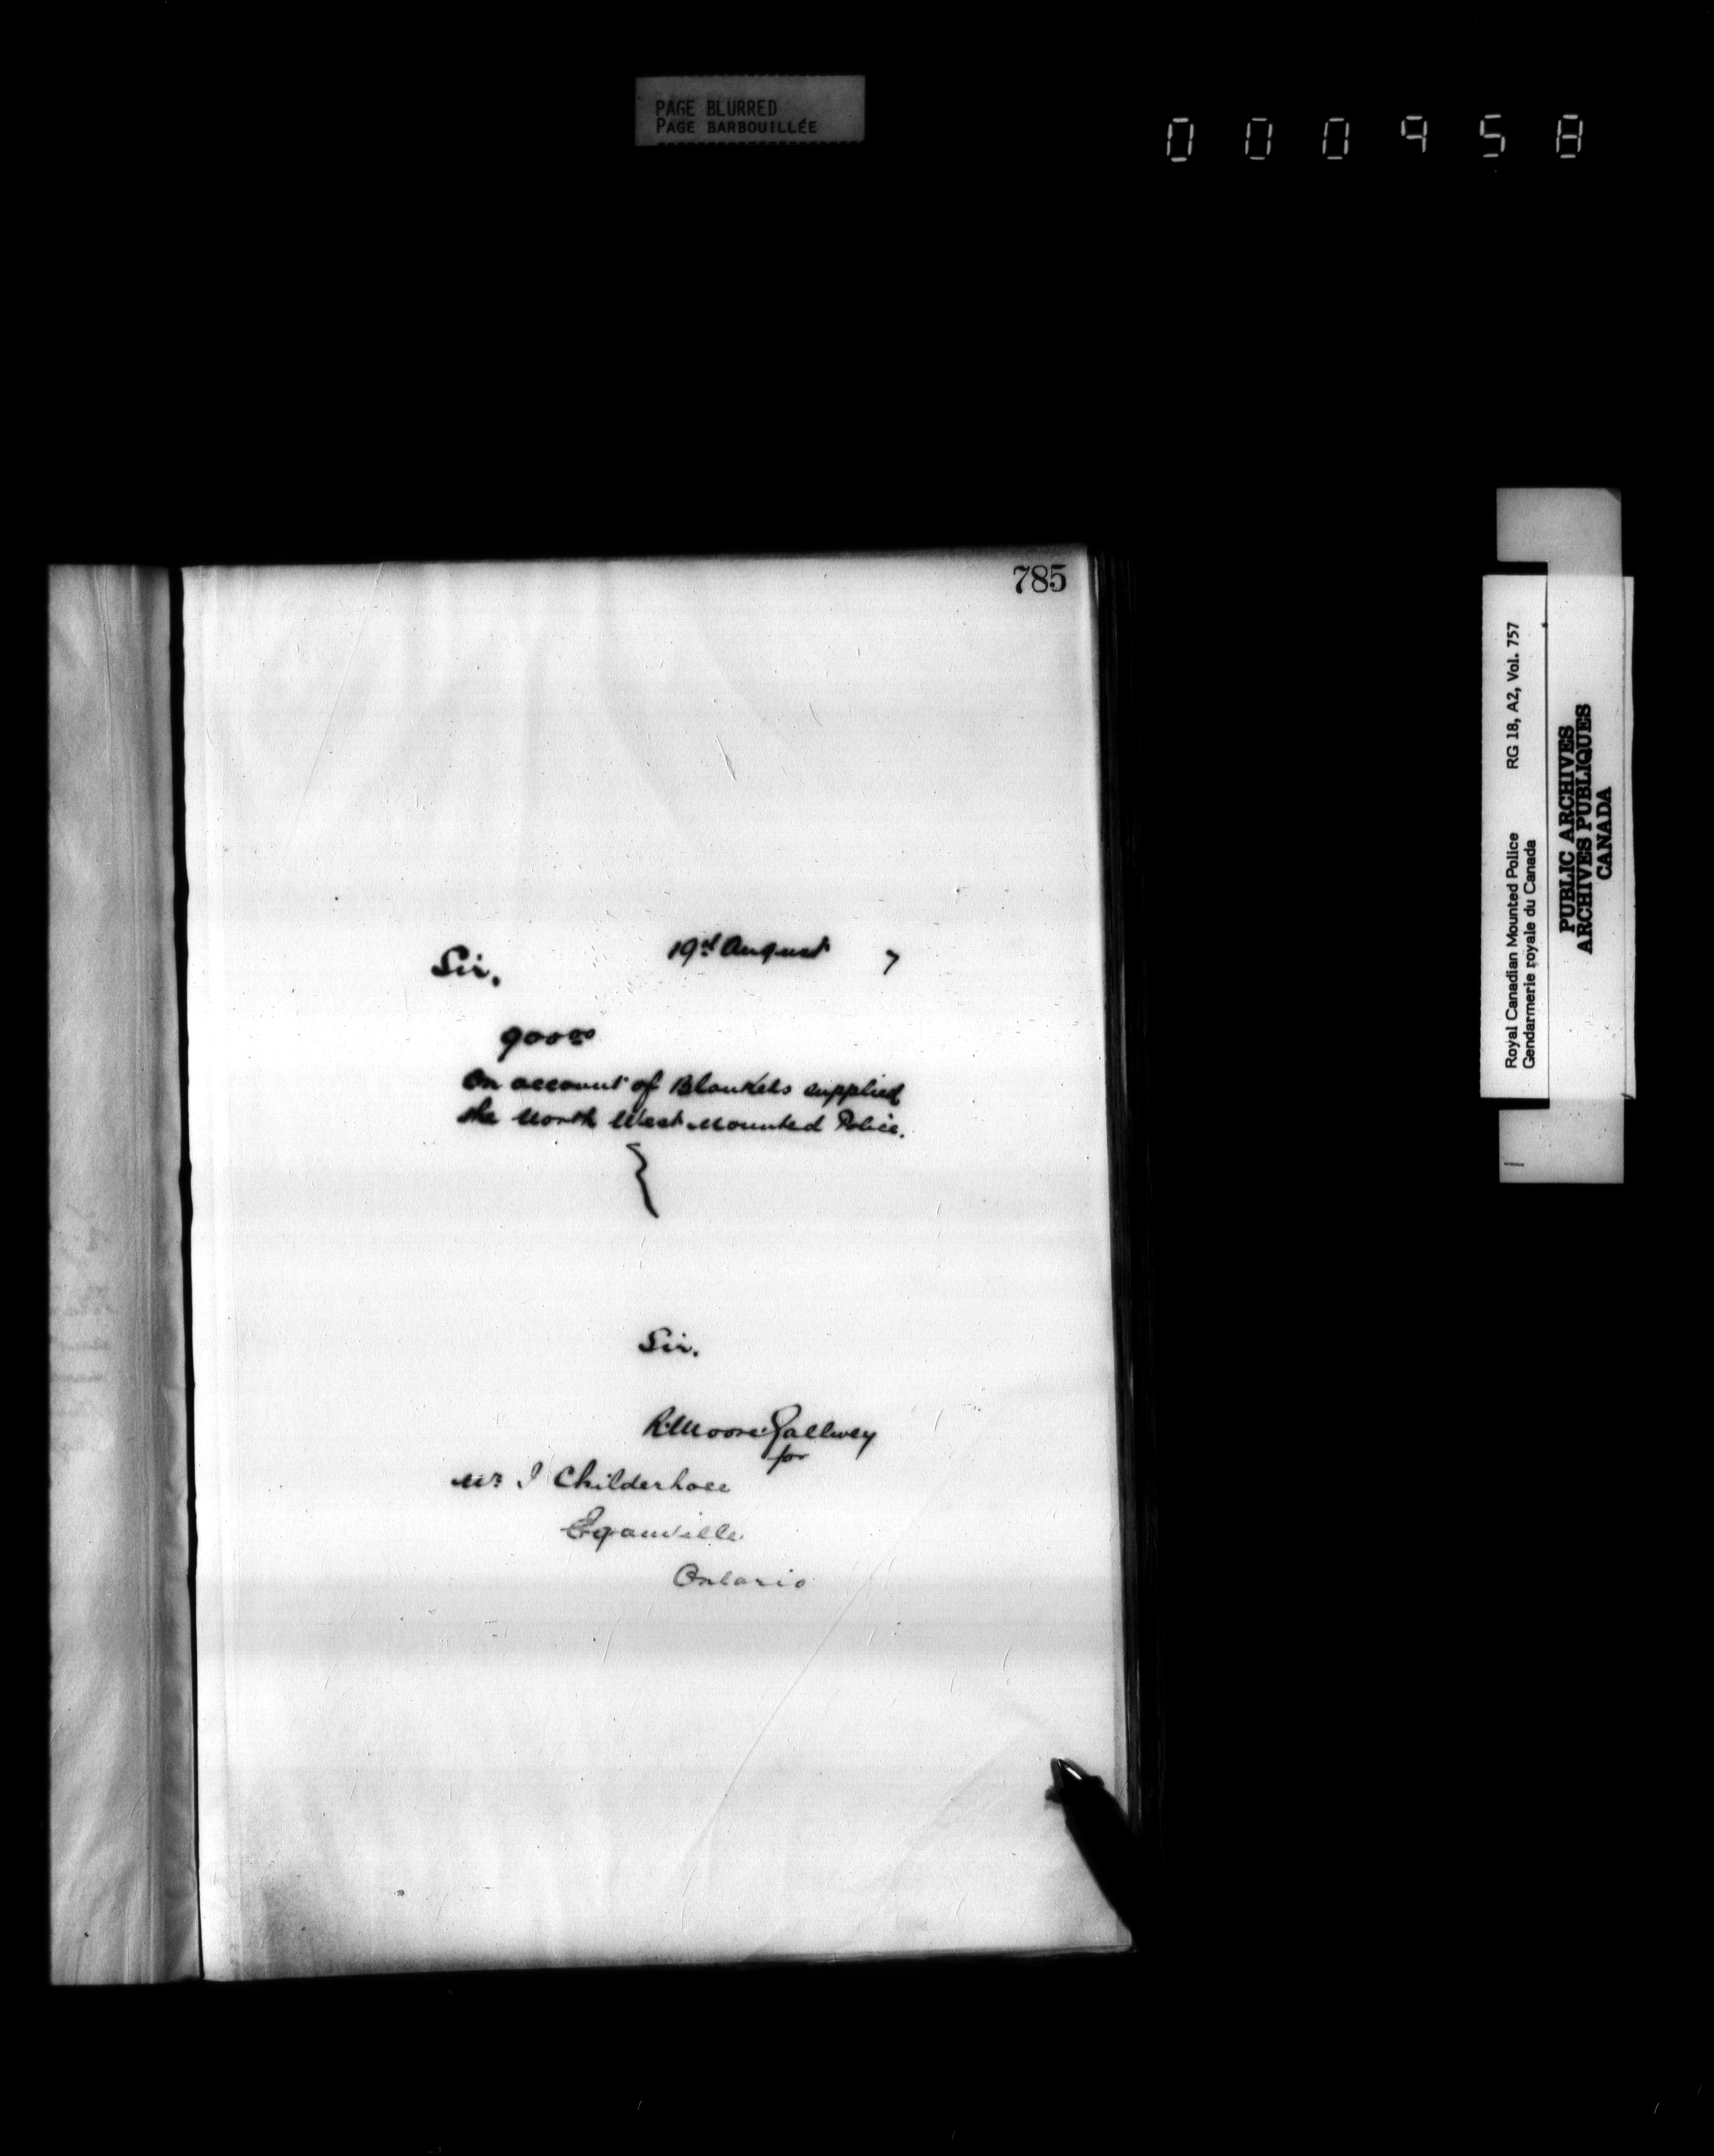 PAGE BLURRED
PAGE BARBOUILLÉE
000958
785
19th August 7
Sir,
900 00
On account of Blankets supplied
the North West Mounted Police.
Sir.
R. Moore Gallwey
for
Mr I Childerhose
Eganville
Ontario
Royal Canadian Mounted Police RG 18, A2, Vol. 757
Gendarmerie royale du Canada
PUBLIC ARCHIVES
ARCHIVES PUBLIQUES
CANADA